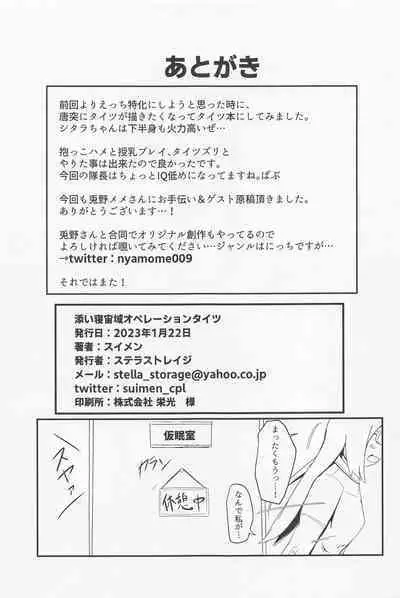 あとがき
前回よりえっち特化にしようと思った時に、
唐突にタイツが描きたくなってタイツ本にしてみました。
シタラちゃんは下半身も火力高いぜ…
抱っこハメと授乳プレイ、タイツズリと
やりた事は出来たので良かったです。
今回の隊長はちょっとIQ低めになってますね。ばぶ
今回も兎野メメさんにお手伝い&ゲスト原稿頂きました。
ありがとうございます…!
兎野さんと合同でオリジナル創作もやってるので
よろしければ覗いてみてください…ジャンルはにっちですが…
→twitter:nyamome009
それではまた!
添い寝宙域オペレーションタイツ
発行日:2023年1月22日
著者:スイメン
発行者:ステラストレイジ
メール:stella_storage@yahoo.co.jp
twitter:suimen_cpl
印刷所:株式会社 栄光 様
まったくもうっ…!
なんで私が…
仮眠室
カラン
休憩中
スヤァ